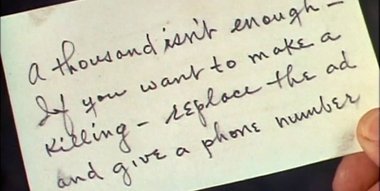 A thousand isn't enough –
If you want to make a
killing – replace the ad
and give a phone number